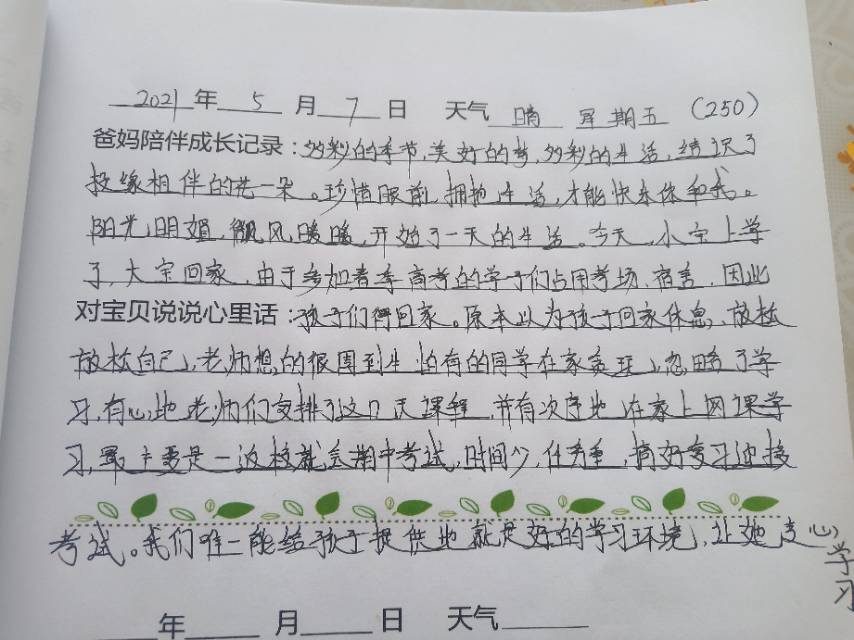 2021年 5 月 7 日 天气 晴 星期五 (250)
爸妈陪伴成长记录：多彩的季节，美好的梦，多彩的生活，结识了
投缘相伴的花一朵。珍惜眼前，拥抱生活，才能快乐你和我。
阳光明媚，微风暖暖，开始了一天的生活。今天，小宝上学
了，大宝回家，由于参加春季高考的学子们占用考场，宿舍，因此
对宝贝说说心里话：孩子们得回家。原本以为孩子回家休息，放松
放松自己，老师想的很周到生怕有的同学在家贪玩，忽略了学
习，有心地老师们安排了这几天课程，并有次序地在家上网课学
习，最主要是一返校就会期中考试，时间少，任务重，搞好复习迎接
考试。我们唯一能给孩子提供地就是好的学习环境，让她走心学习
年 月 日 天气